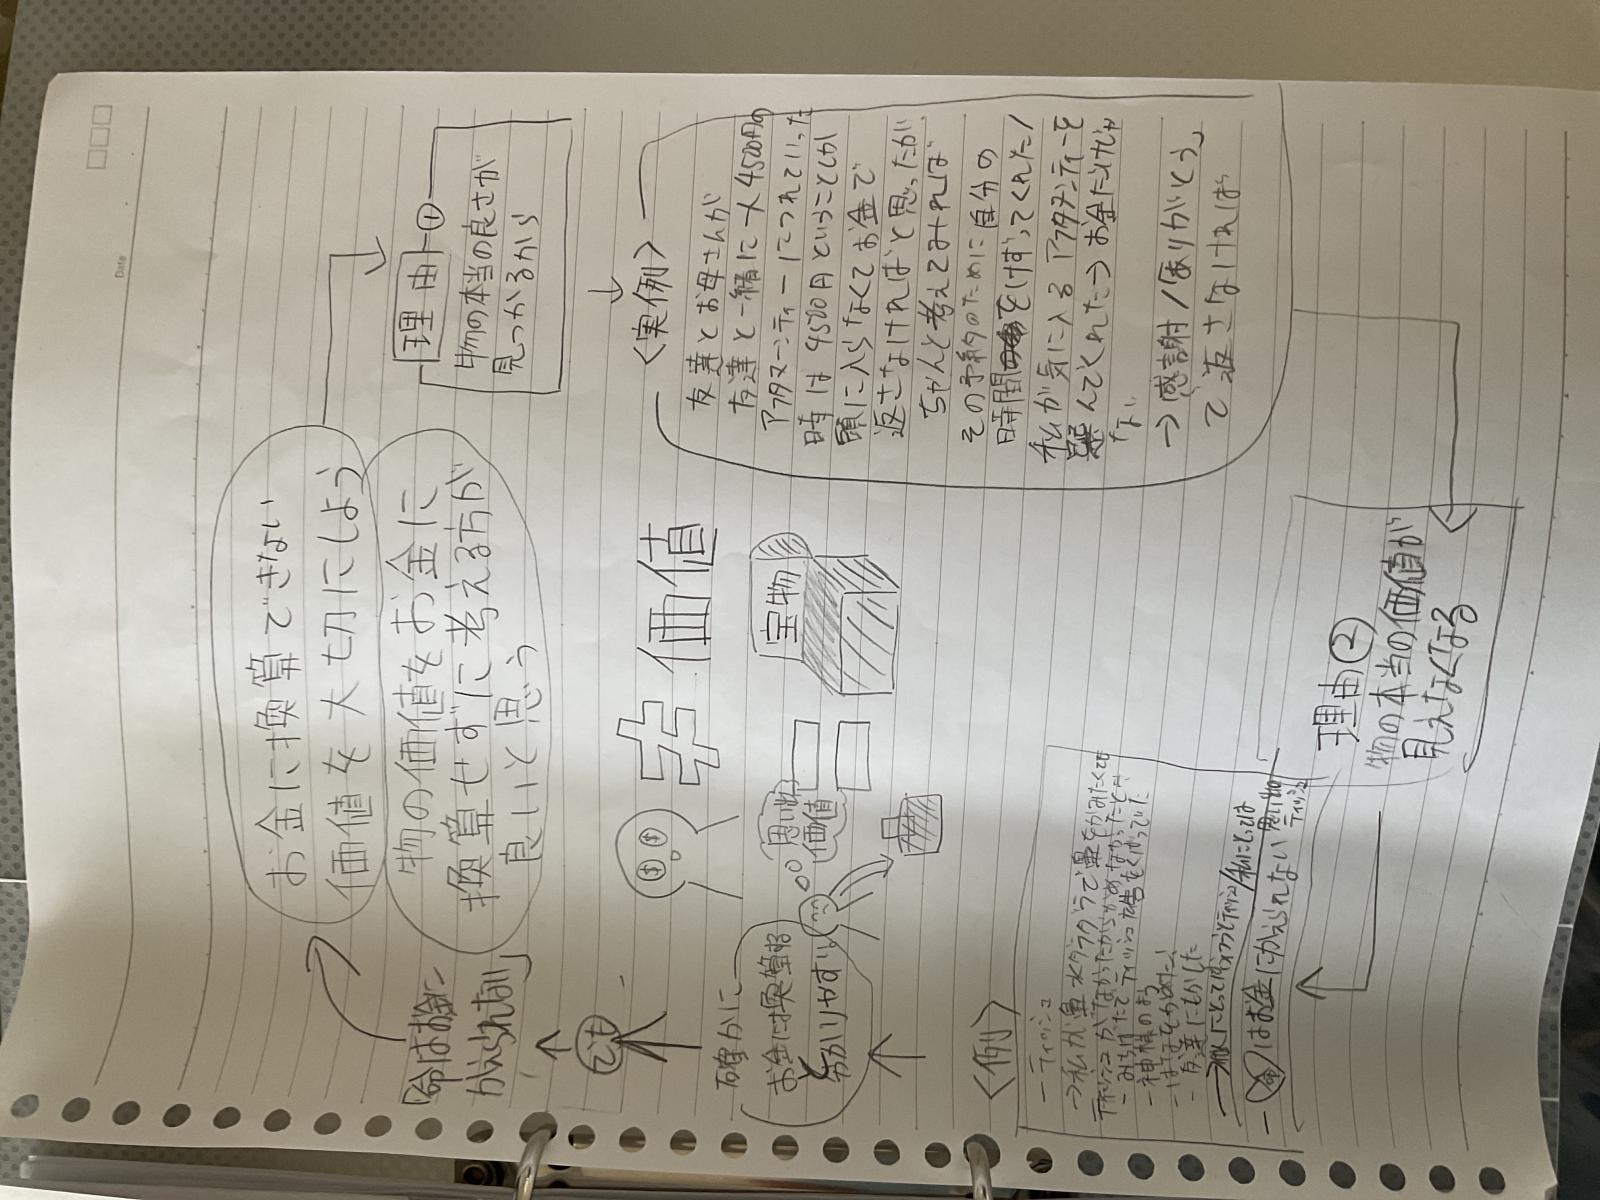 Date
お金に換算できない
価値を大切にしよう
物の価値をお金に
換算せずに考える方が
良いと思う
理由①
物の本当の良さが
見つかるから
<実例>
友達とお母さんが
友達と一緒に一人4500円の
アフタヌーンティーにつれていった
時は4500円ということしか
頭に入らなくてお金で
返さなければと思ったが
ちゃんと考えてみれば
その予約のために自分の
時間をけずってくれた/
私が気に入るアフタヌンティーを
選んでくれた→お金だけじゃ
ない
→感謝/「ありがとう」
で返さなければ
理由②
物の本当の価値が
見えなくなる
<例>
-ティッシュ
→私が鼻水グラグラで鼻をかみたくても
ティッシュがなかったからかめなかったこと
-神様のお
-友達にもらった
お金にかえられない思い出
ティッシュ
確かに
お金には換算する
と分かりやすい
思い出
価値
宝物
$ $
価値
命はお金に
かえられない